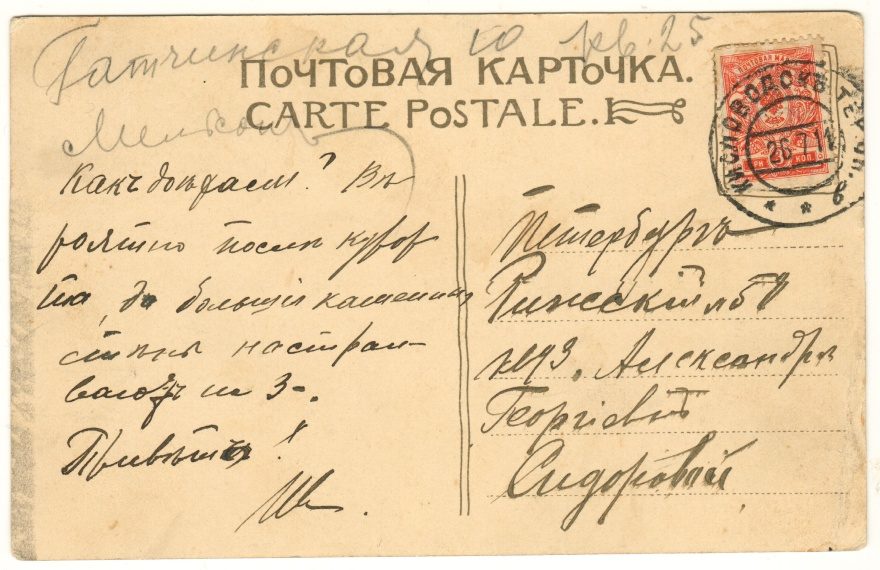 Гатчинская 10 кв. 25
ПОЧТОВАЯ КАРТОЧКА.
CARTE POSTALE.
КИСЛОВОДСКЪ ТЕРСК.
26 7 11
6
Какъ доѣхали? Вѣ
роятно послѣ курор
та, да большія каменныя
стѣны настраи-
ваютъ на 3-.
Привѣтъ!
Петербургъ
Рижскій
Александрѣ
Георгіевнѣ
Сидоровой